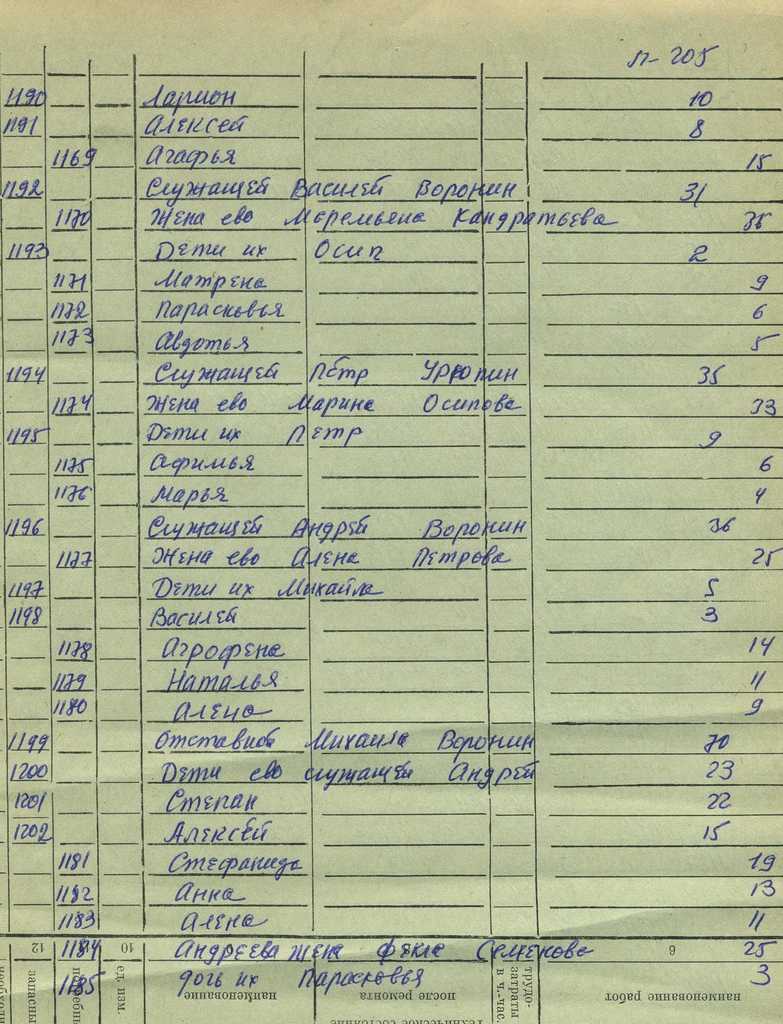 л-205
1190 Ларион 10
1191 Алексей 8
1169 Агафья 15
1192 Служащей Василей Воронин 31
1170 Жена ево Маремьяна Кандратьева 36
1193 Дети их Осип 2
1171 Матрена 9
1172 Парасковья 6
1173 Авдотья 5
1194 Служащей Пётр Урюпин 35
1174 Жена ево Марина Осипова 33
1195 Дети их Петр 9
1175 Афимья 6
1176 Марья 4
1196 Служащей Андрей Воронин 36
1177 Жена ево Алена Петрова 25
1197 Дети их Михайла 5
1198 Василей 3
1178 Агрофена 14
1179 Наталья 11
1180 Алена 9
1199 Отставной Михайла Воронин 70
1200 Дети ево служащей Андрей 23
1201 Степан 22
1202 Алексей 15
1181 Стефанида 19
1182 Анна 13
1183 Алена 11
1184 Андреева жена Фекла Семенова 25
1185 дочь их Парасковья 3
12 10 9
наименование работ
трудо-
затраты
в ч.-час.
после ремонта
наименование
ед. изм.
запасны
Техническое состояние